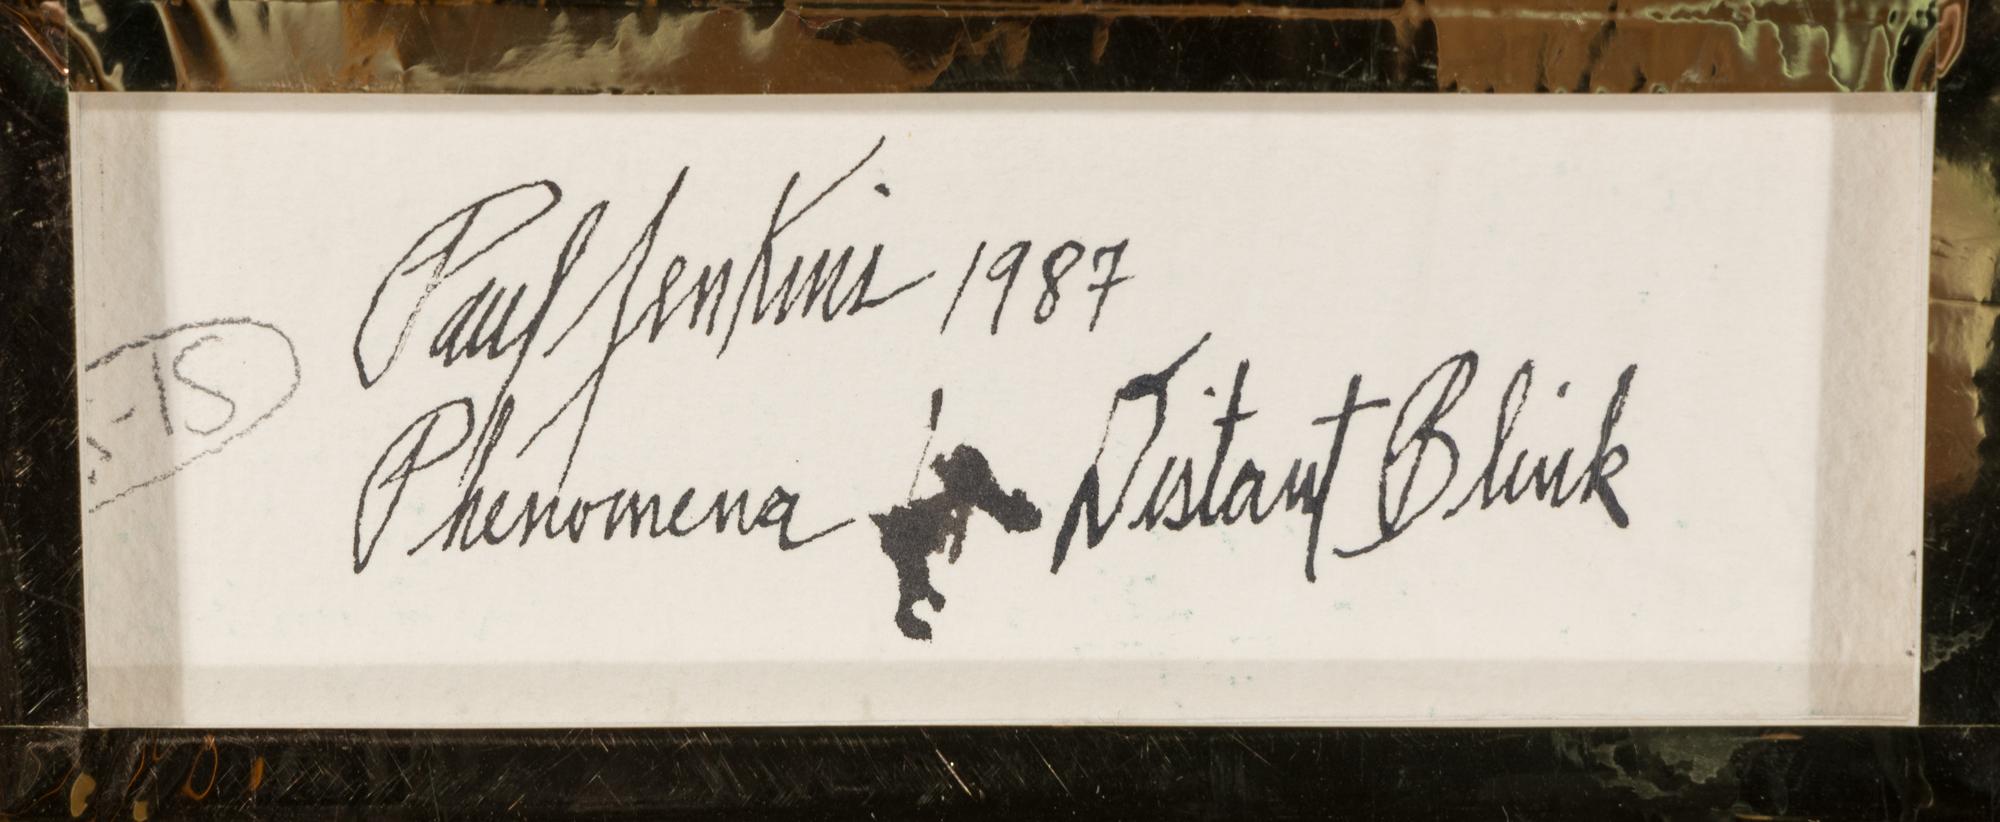 Paul Jenkins 1987
Phenomena Distant Blink
-IS